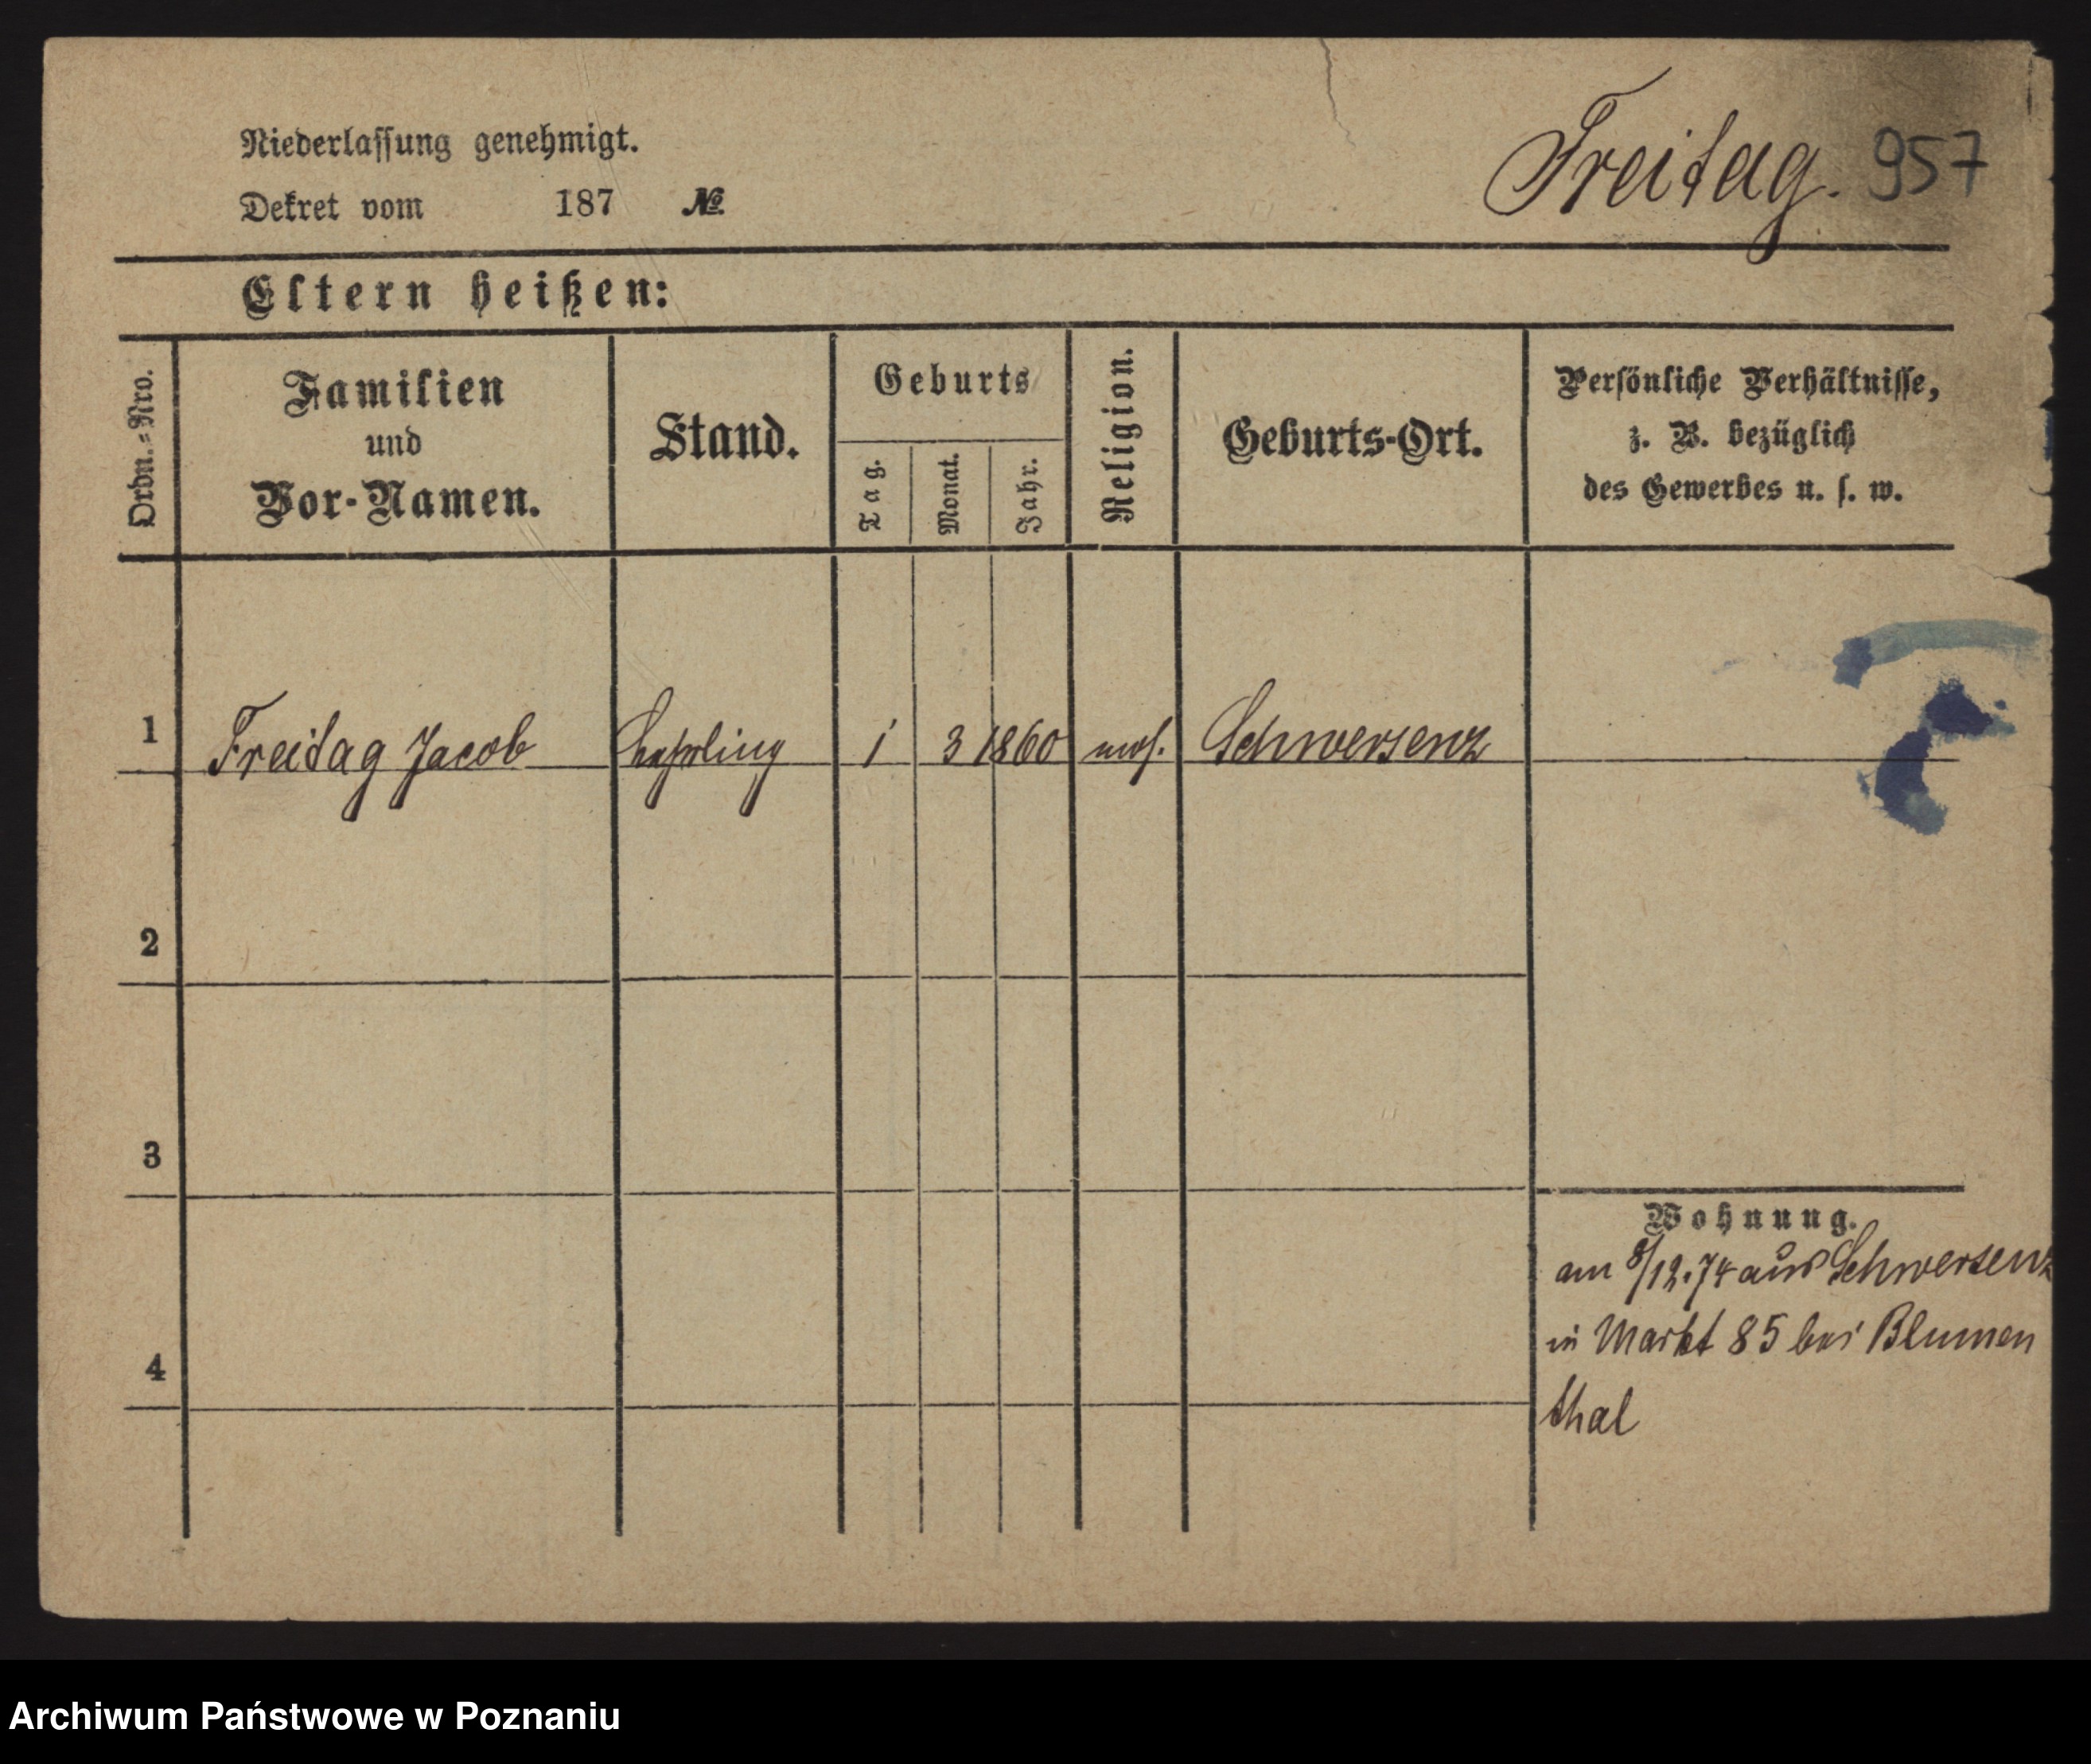 Niederlassung genehmigt.
Dekret vom 187 №
Freitag. 957
Eltern heißen:
Ordn.-Nro.
Familien
und
Vor-Namen.
Stand.
Geburts
Tag.
Monat.
Jahr.
Religion.
Geburts-Ort.
Persönliche Verhältnisse,
z. B. bezüglich
des Gewerbes u. s. w.
1 Freitag Jacob Lehrling 1 3 1860 mos. Schwersenz
2
3
4
Wohnung.
am 8/12.74 aus Schwersenz
in Markt 85 bei Blumen
thal
Archiwum Państwowe w Poznaniu